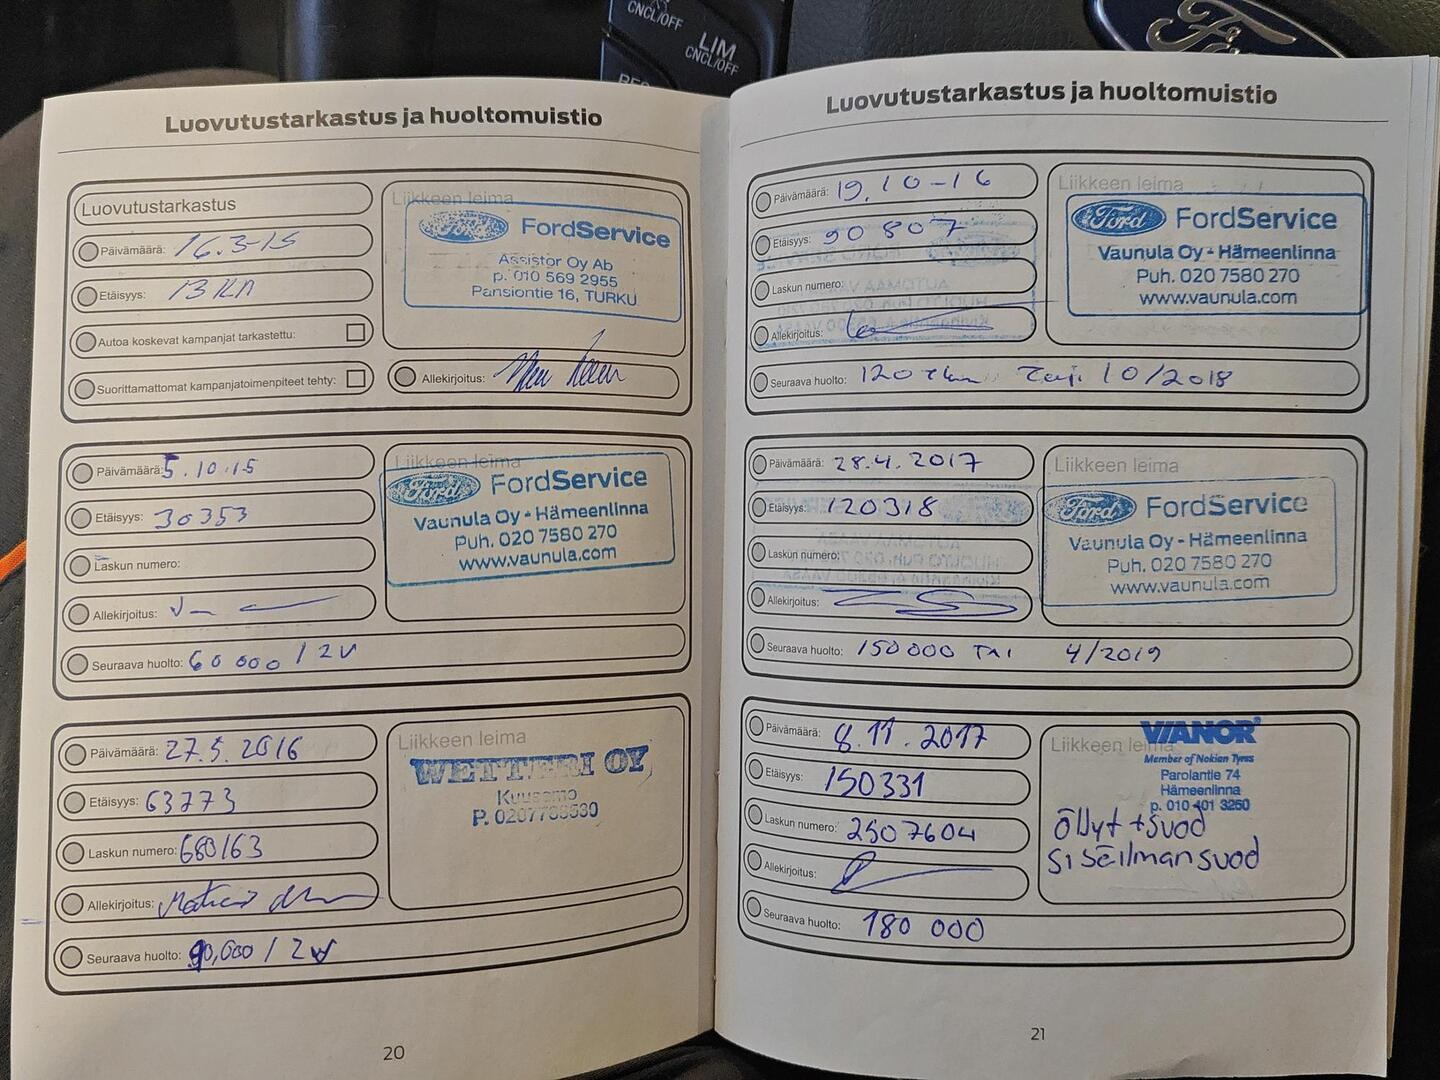 CNCL/OFF
LIM
CNCL/OFF
Ford
Luovutustarkastus ja huoltomuistio
Luovutustarkastus
Päivämäärä: 16.3-15
Etäisyys: 13 KM
Autoa koskevat kampanjat tarkastettu:
Suorittamattomat kampanjatoimenpiteet tehty:
Liikkeen leima
Ford FordService
Assistor Oy Ab
p. 010 569 2955
Pansiontie 16, TURKU
Allekirjoitus:
Päivämäärä: 5.10.15
Etäisyys: 30353
Laskun numero:
Allekirjoitus:
Seuraava huolto: 60 000 / 2V
Liikkeen leima
Ford FordService
Vaunula Oy - Hämeenlinna
Puh. 020 7580 270
www.vaunula.com
Päivämäärä: 27.5.2016
Etäisyys: 63773
Laskun numero: 680163
Allekirjoitus:
Seuraava huolto: 90,000 / 2V
Liikkeen leima
WETTERI OY
Kuusamo
20
Luovutustarkastus ja huoltomuistio
Päivämäärä: 19.10-16
Etäisyys: 90807
Laskun numero:
Allekirjoitus:
Seuraava huolto: 120 tkm 10/2018
Liikkeen leima
Ford FordService
Vaunula Oy - Hämeenlinna
Puh. 020 7580 270
www.vaunula.com
Päivämäärä: 28.4.2017
Etäisyys: 120318
Laskun numero:
Allekirjoitus:
Seuraava huolto: 150000 TAI 4/2019
Liikkeen leima
Ford FordService
Vaunula Oy - Hämeenlinna
Puh. 020 7580 270
www.vaunula.com
Päivämäärä: 8.11.2017
Etäisyys: 150331
Laskun numero: 2507604
Allekirjoitus:
Seuraava huolto: 180 000
Liikkeen leima
VIANOR
Member of Nokian Tyres
Parolantie 74
Hämeenlinna
p. 010 401 3250
öllyt + suod
sisäilman suod
21